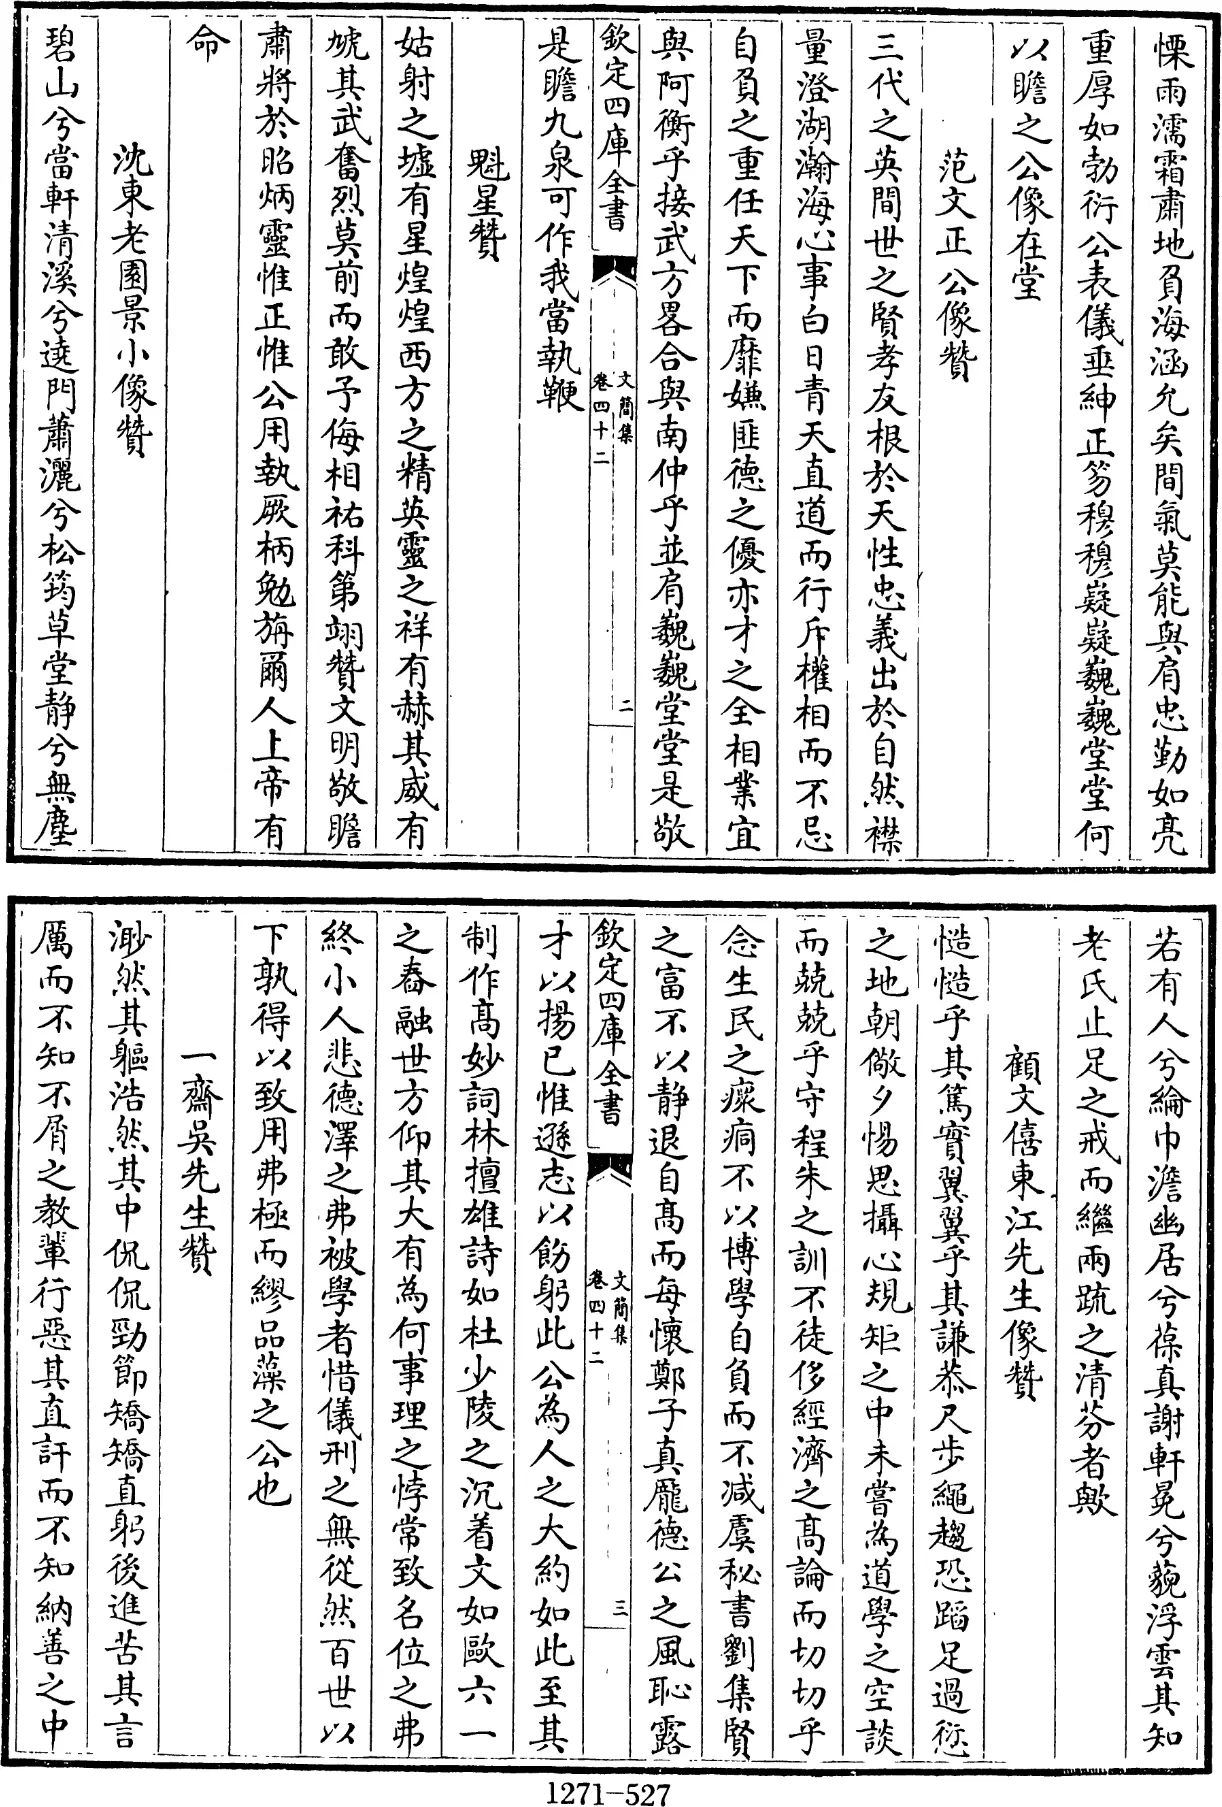 慄雨濡霜肅地負海涵允矣間氣莫能與肩忠勤如亮
重厚如勃衍公表儀垂紳正笏穆穆嶷嶷巍巍堂堂何
以瞻之公像在堂
范文正公像贊
三代之英間世之賢孝友根於天性忠義出於自然襟
量澄湖瀚海心事白日青天直道而行斥權相而不忌
自負之重任天下而靡嫌匪德之優亦才之全相業宜
與阿衡乎接武方畧合與南仲乎並肩巍巍堂堂是敬
欽定四庫全書
文簡集
卷四十二
二
是瞻九泉可作我當執鞭
魁星贊
姑射之墟有星煌煌西方之精英靈之祥有赫其威有
虓其武奮烈莫前而敢予侮相祐科第翊贊文明敬瞻
肅將於昭炳靈惟正惟公用執厥柄勉旃爾人上帝有
命
沈東老園景小像贊
碧山兮當軒清溪兮遶門蕭灑兮松筠草堂靜兮無塵
若有人兮綸巾澹幽居兮葆真謝軒冕兮藐浮雲其知
老氏止足之戒而繼兩疏之清芬者歟
顧文僖東江先生像贊
慥慥乎其篤實翼翼乎其謙恭尺步繩趨恐蹈足過愆
之地朝儆夕惕思攝心規矩之中未嘗為道學之空談
而兢兢乎守程朱之訓不徒侈經濟之高論而切切乎
念生民之瘝痌不以博學自負而不减虞秘書劉集賢
之富不以静退自高而每懷鄭子真龐德公之風恥露
欽定四庫全書
文簡集
卷四十二
三
才以揚已惟遜志以飭躬此公為人之大約如此至其
制作高妙詞林擅雄詩如杜少陵之沉着文如歐六一
之舂融世方仰其大有為何事理之悖常致名位之弗
終小人悲德澤之弗被學者惜儀刑之無從然百世以
下孰得以致用弗極而繆品藻之公也
一齋吳先生贊
渺然其軀浩然其中侃侃勁節矯矯直躬後進苦其言
厲而不知不屑之教輩行惡其直訐而不知納善之中
1271-527